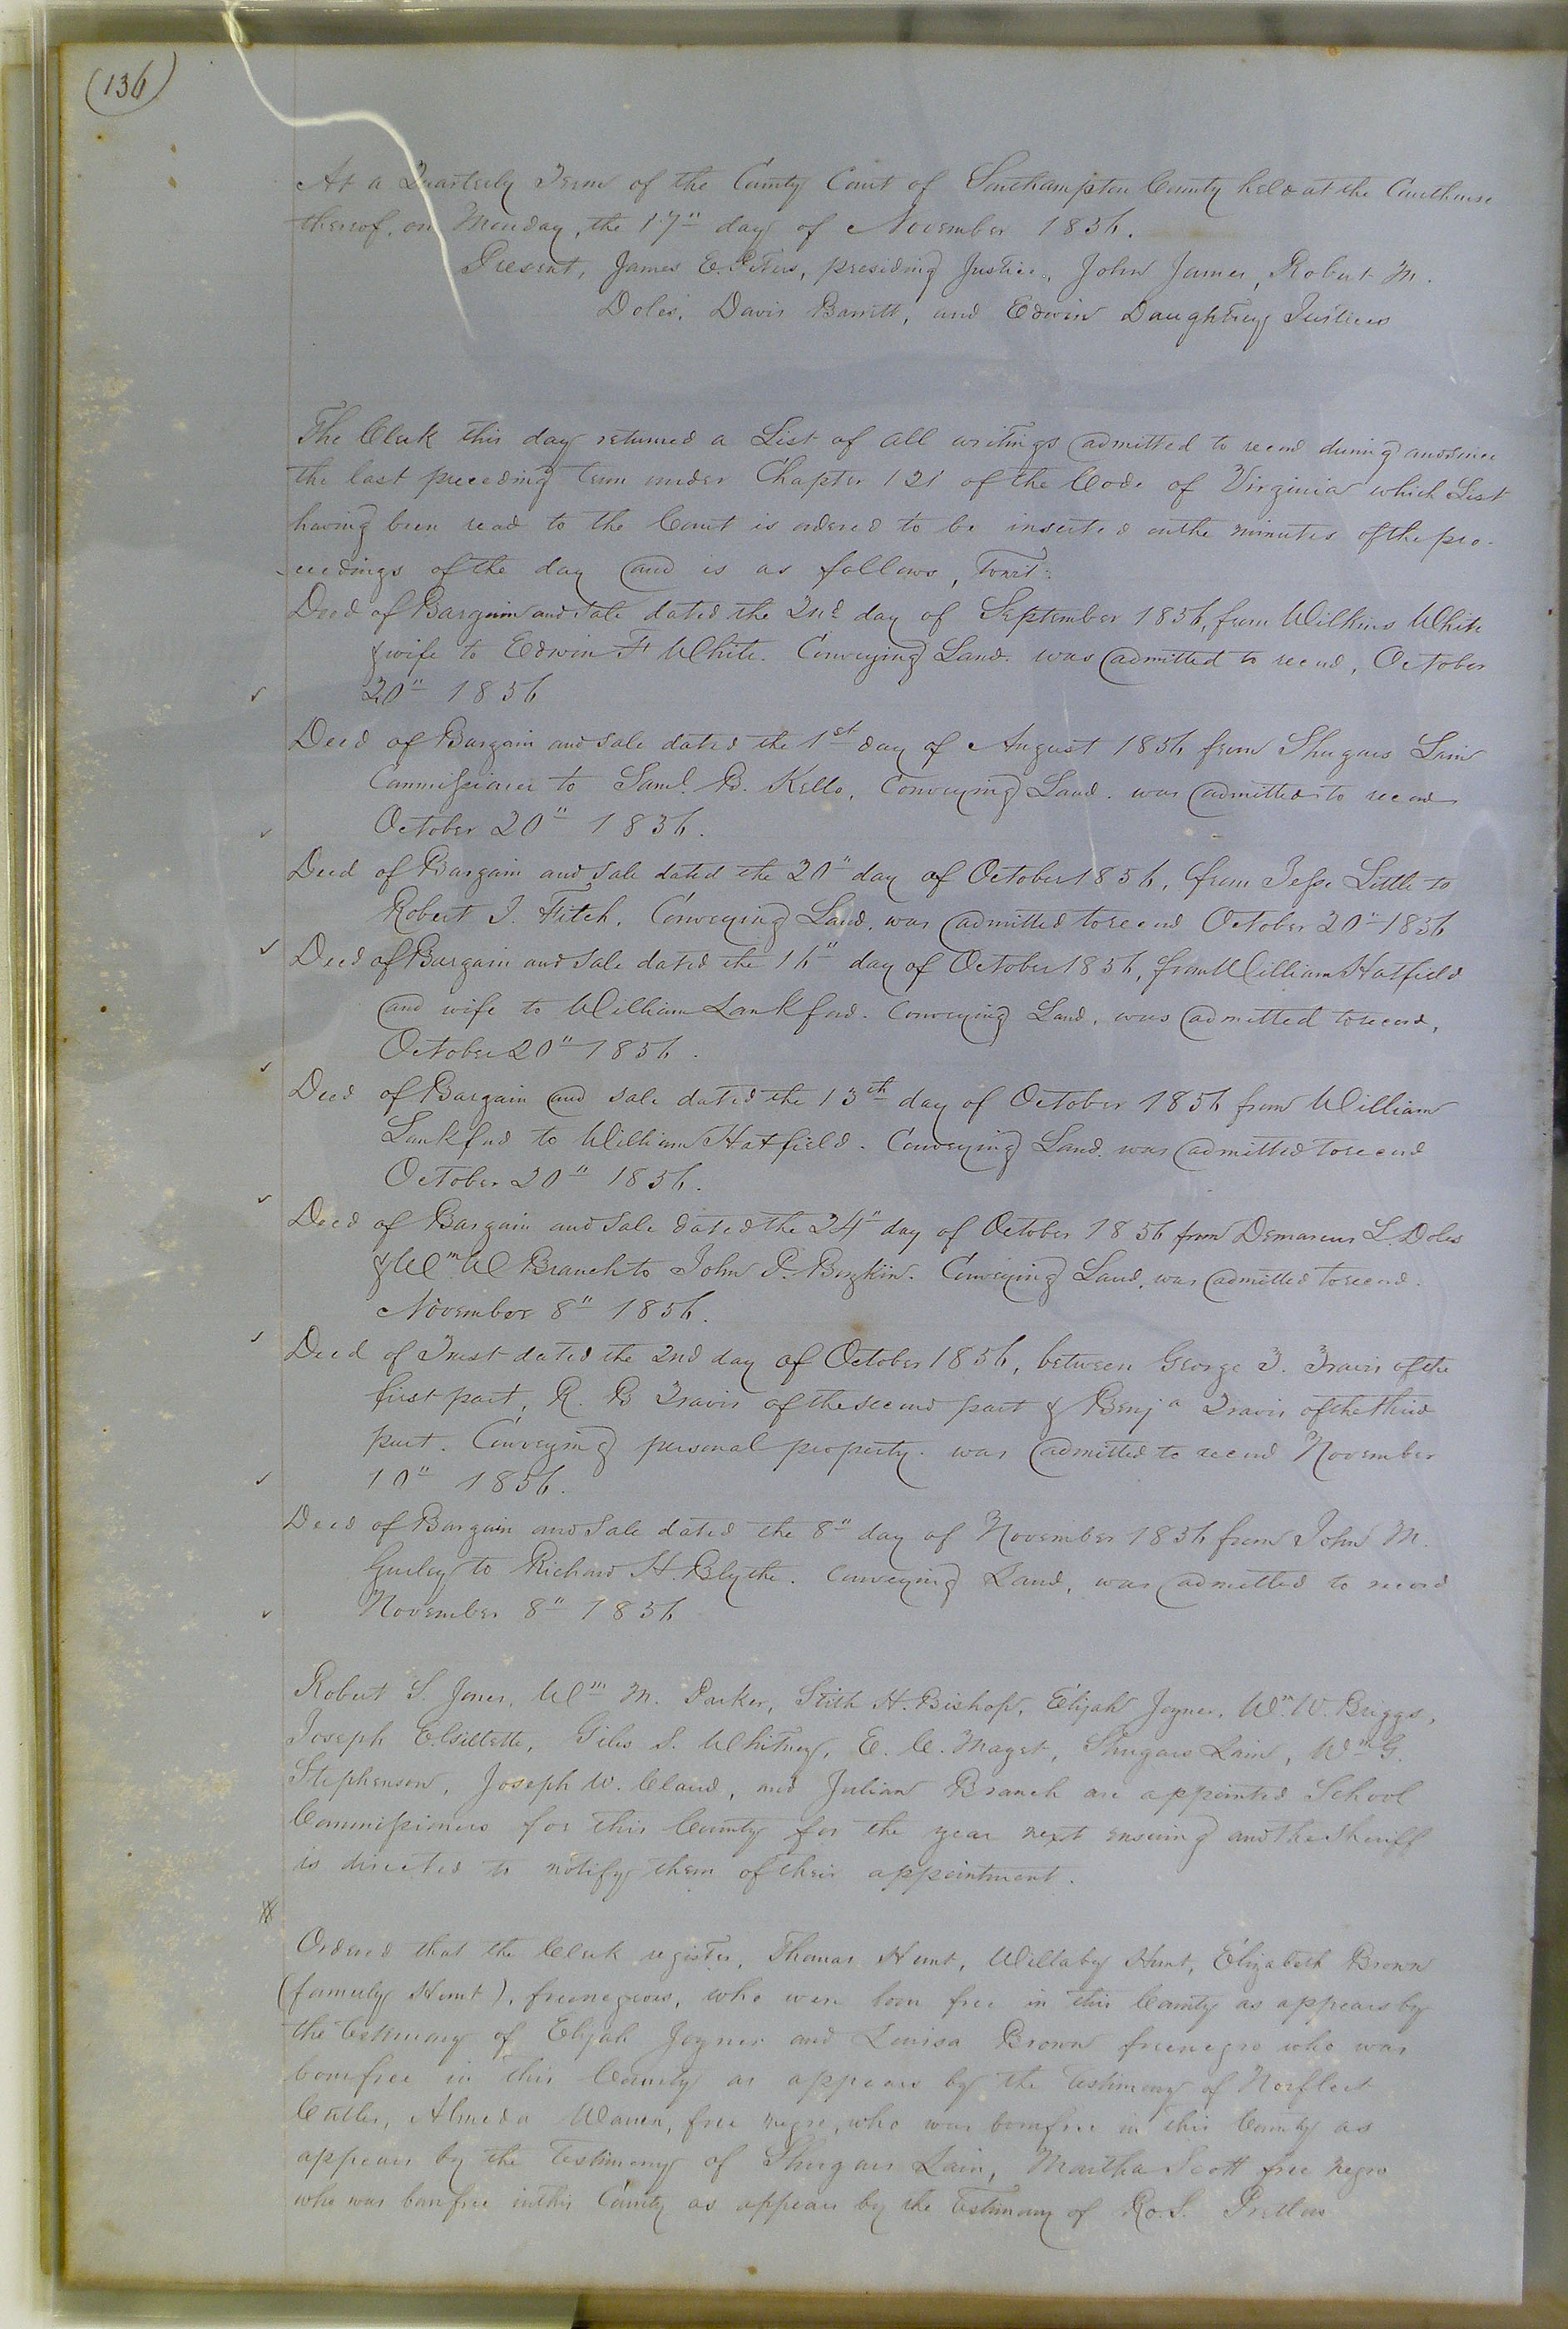 (136)
At a Quarterly Term of the County Court of Southampton County held at the Courthouse
thereof, on Monday, the 17" day of November 1856.
Present, James E. Peters, presiding Justice, John James, Robert M.
Doles, Davis Barrett, and Edwin Daughtrey Justices
The Clerk this day returned a List of all writings admitted to record during and since
the last preceding term under Chapter 121 of the Code of Virginia which List
having been read to the Court is ordered to be inserted on the minutes of the pro-
ceedings of the day and is as follows, Towit:
Deed of Bargain and Sale dated the 2nd day of September 1856, from Wilkins White
& wife to Edwin F White. Conveying Land. was admitted to record, October
20" 1856
Deed of Bargain and Sale dated the 1st day of August 1856 from Shugars Lain
Commissioner to Saml. B. Kello, Conveying Land. was admitted to record
October 20" 1856.
Deed of Bargain and Sale dated the 20" day of October 1856, from Jesse Little to
Robert J. Fitch. Conveying Land. was admitted to record October 20" 1856
Deed of Bargain and Sale dated the 16" day of October 1856, from William Hatfield
and wife to William Lankford. Conveying Land, was admitted to record,
October 20" 1856.
Deed of Bargain and Sale dated the 13th day of October 1856 from William
Lankford to William Hatfield. Conveying Land. was admitted to record
October 20" 1856.
Deed of Bargain and Sale dated the 24" day of October 1856 from Demarcus L. Doles
& Wm W Branch to John P. Bozkin. Conveying Land. was admitted to record.
November 8" 1856.
Deed of Trust dated the 2nd day of October 1856, between George T. Travis of the
first part, R. B Travis of the second part & Benja Travis of the third
part. Conveying personal property. was admitted to record November
10" 1856.
Deed of Bargain and Sale dated the 8" day of November 1856 from John M.
Gurley to Richard H. Blythe. Conveying Land, was admitted to record
November 8" 1856
Robert S. Jones, Wm M. Parker, Stith H. Bishop, Elijah Joyner, Wm W. Briggs,
Joseph E. Gillette, Giles S. Whitney, E. C. Maget, Shugars Lain, Wm G.
Stephenson, Joseph W. Claud, and Julian Branch are appointed School
Commissioners for this County for the year next ensuing and the Sheriff
is directed to notify them of their appointment.
Ordered that the Clerk register, Thomas Hunt, Willaby Hunt, Elizabeth Brown
(formerly Hunt), free negroes, who were born free in this County as appears by
the testimony of Elijah Joyner and Louisa Brown free negro who was
born free in this County as appears by the testimony of Norfleet
Cutler, Almeda Warren, free negro, who was born free in this County as
appears by the testimony of Shugars Lain, Martha Scott free negro
who was born free in this County as appears by the testimony of Ro. S. Pretlow